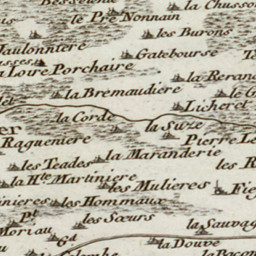 la Chusso
le Pré Nonnain
les Burons
Gatebourse
la Loire Porchaire
la Bremaudiere
la Reran
Licheret
la Corde
la Suze
Raqueniere
Pierre L
les Teades
la Maranderie
les R
la Hte Martiniere
les Mulieres
les Hommaux
les Sœurs
Pt
Moriau
la Sauva
Gd
la Douve